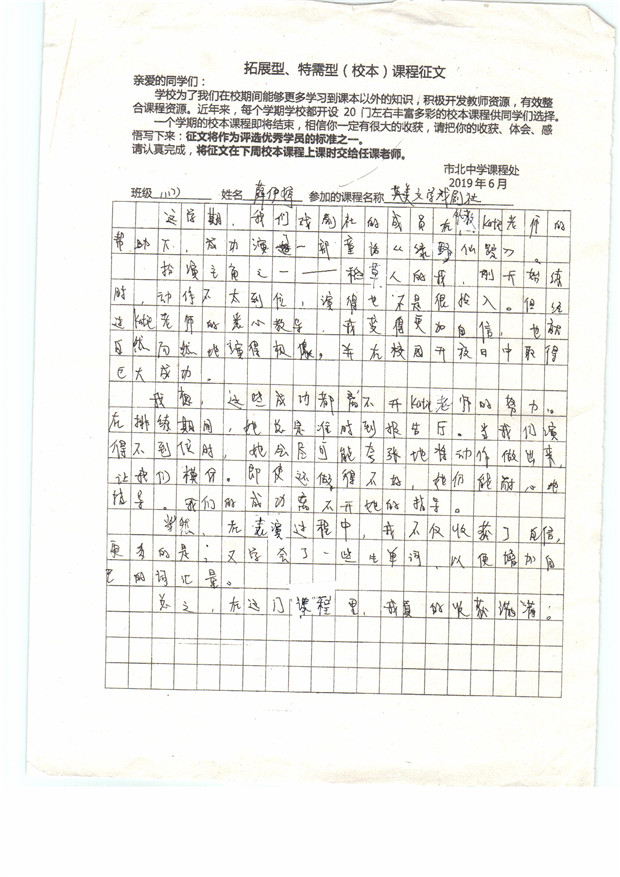 拓展型、特需型（校本）课程征文
亲爱的同学们：
学校为了我们在校期间能够更多学习到课本以外的知识，积极开发教师资源，有效整
合课程资源。近年来，每个学期学校都开设 20 门左右丰富多彩的校本课程供同学们选择。
一个学期的校本课程即将结束，相信你一定有很大的收获，请把你的收获、体会、感
悟写下来：征文将作为评选优秀学员的标准之一。
请认真完成，将征文在下周校本课程上课时交给任课老师。
市北中学课程处
2019 年 6 月
班级 姓名 薛伊 参加的课程名称 英美文学戏剧社
这学期，我们戏剧社的成员在 Katy老师的
帮助下，成功演 一部童话《绿野仙踪》。
扮演主角之一——稻草人的我，刚开始练
时，动作不太到位，演得也不是很投入。但经
过Katy老师的悉心教导，我变得更加自信，也能
自然而然地演得很像。并在校园开放日中取得
巨大成功。
我想，这些成功都离不开Katy老师的努力。
在排练期间，她总是准时到报告厅。当我们演
得不到位时，她会尽可能夸张地将动作做出来，
让我们模仿。即使还做得不好，她仍能耐心地
指导。我们的成功离不开她的指导。
当然，在表演过程中，我不仅收获了自信，
更多的是，又学会了一些生单词，以便增加自
己的词汇量。
总之，在这门课程里，我真的收获满满。